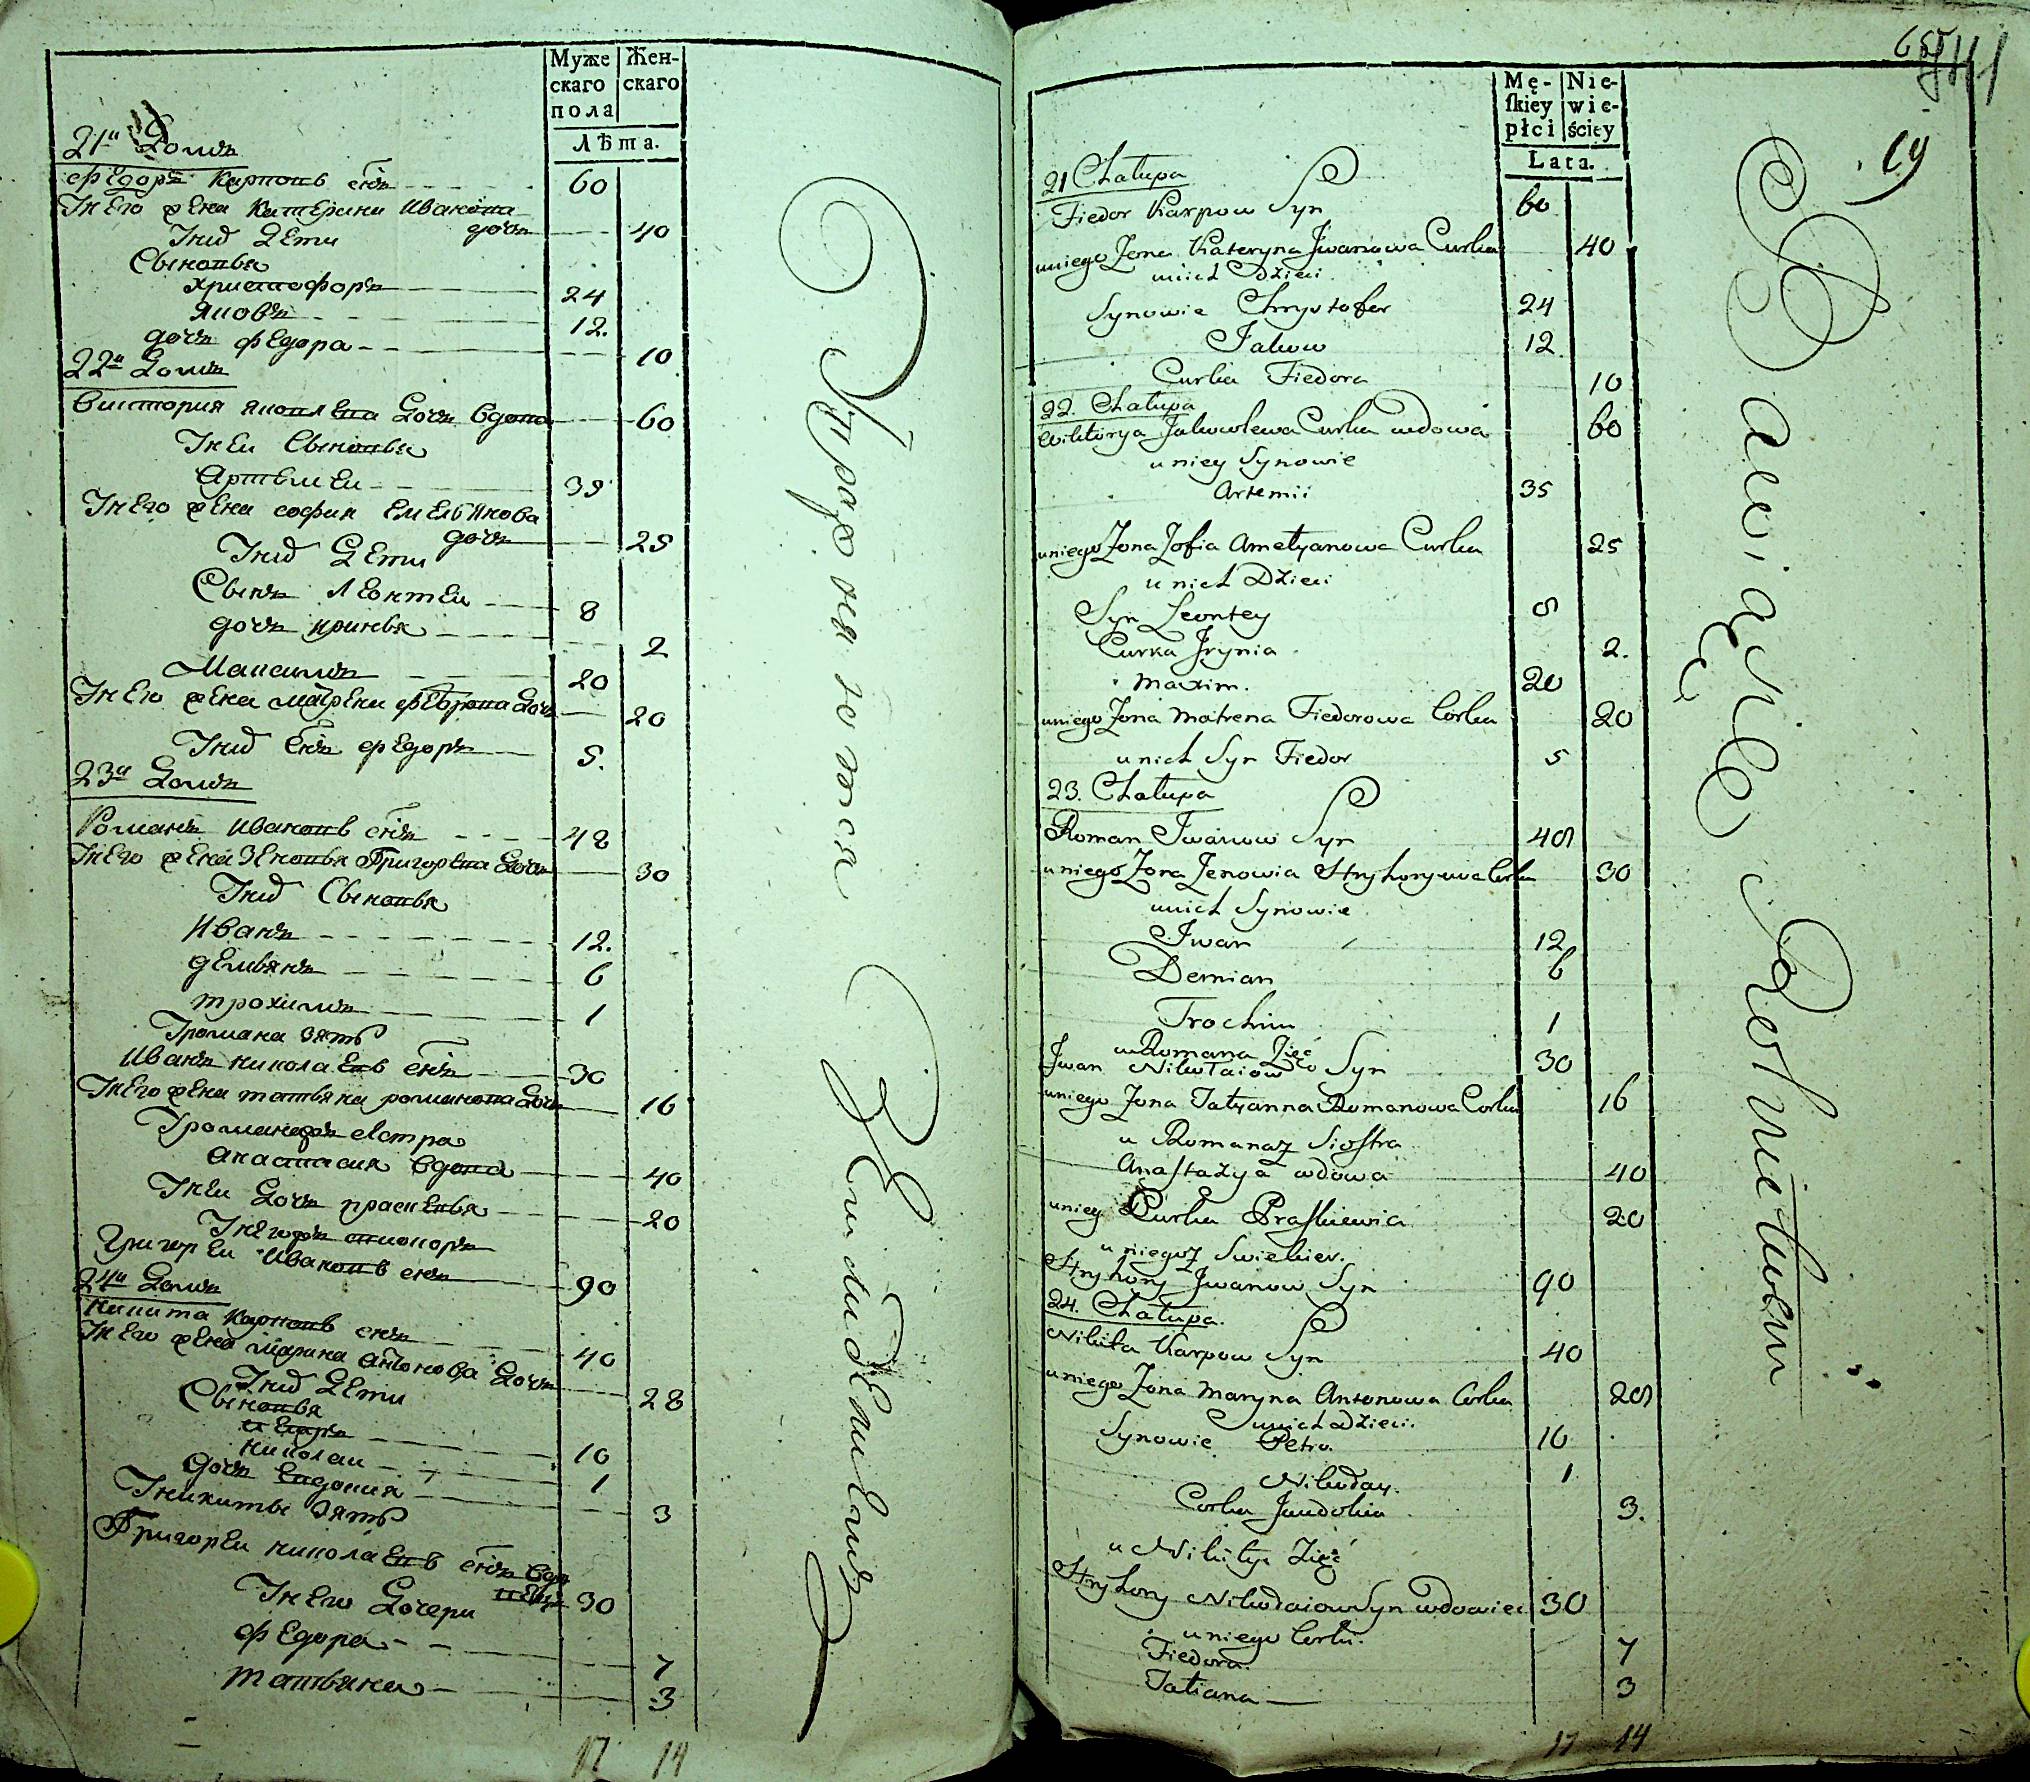 Муже
скаго
пола
Жен-
скаго
Лѣта.
21й Домъ
Федоръ Карповъ снъ 60
Унего жена Катерина Иванова
дочь 40
Уних дети
Сыновья
Христофоръ 24
Яковъ 12.
дочь Федора 10
22й Домъ
Виктория Яковлева Дочь вдова 60
Унеи Сыновья
Артемеи 35
Унего жена София Емельянова
дочь 25
Уних Дети
Сынъ Леонтеи 8
дочь иринья 2
Максимъ 20
Унего жена матрена Федорова Дочь 20
Уних снъ Федоръ 5.
23й Домъ
Романъ Ивановъ снъ 48
Унего жена Зеновья Григорева Дочь 30
Уних Сыновья
Иванъ 12.
демьянъ 6
трохимъ 1
Уромана зять
Иванъ николаевъ снъ 30
Унего жена татьяна романова Дочь 16
Уроманажъ сестра
анастасия вдова 40
Унеи Дочь прасковья 20
Унегожъ свіокоръ
Григореи Ивановъ снъ 90
24й Домъ
Никита Карповъ снъ 40
Унего жена марина антонова Дочь 28
Уних Дети
Сыновья
петръ 10
николаи 1
дочь Евдокия 3
Уникиты зять
Григореи николаевъ снъ вдо
вецъ 30
Унего Дочери
Федора 7
татьяна 3
17 14
Праж
651
741
19
Mę-
ſkiey
płci
Nie-
wie-
ściey
Lata.
21 Chałupa
Fiedor Karpow Syn 60
uniego Żona Kateryna Jwanowa Curka 40
unich Dzieci
Synowie Chrystofor 24
Jakow 12
Curka Fiedora 10
22. Chałupa
Wiktorya Jakowlewa Curka wdowa 60
u niey Synowie
Artemii 35
uniego Żona Zofia Amelyanowa Curka 25
u nich Dzieci
Syn Leontey 8
Curka Jrynia 2.
Maxim. 20
uniego Żona Matrena Fiedorowa Corka 20
unich Syn Fiedor 5
23. Chałupa
Roman Jwanow Syn 48
uniego Żona Zenowia Hryhorywa Corka 30
unich Synowie
Jwan 12
Demian 6
Trochim 1
u Romana Zięć
Jwan Nikołaiow Syn 30
uniego Żona Tatyanna Romanowa Corka 16
u Romanaz Siostra
Anaſtazya wdowa 40
uniey Curka Praſkiewia 20
u niegoz Swiekier.
Hryhory Jwanow Syn 90
24. Chałupa.
Nikita Karpow Syn 40
uniego Żona Maryna Antonowa Corka 28
unich dzieci.
Synowie Petro. 10
Nikołay. 1
Corka Jewdokia 3.
u Nikity Zięć
Hryhory Nikołaiow Syn wdowiec 30
uniego Corki.
Fiedora. 7
Tatiana 3
17 14